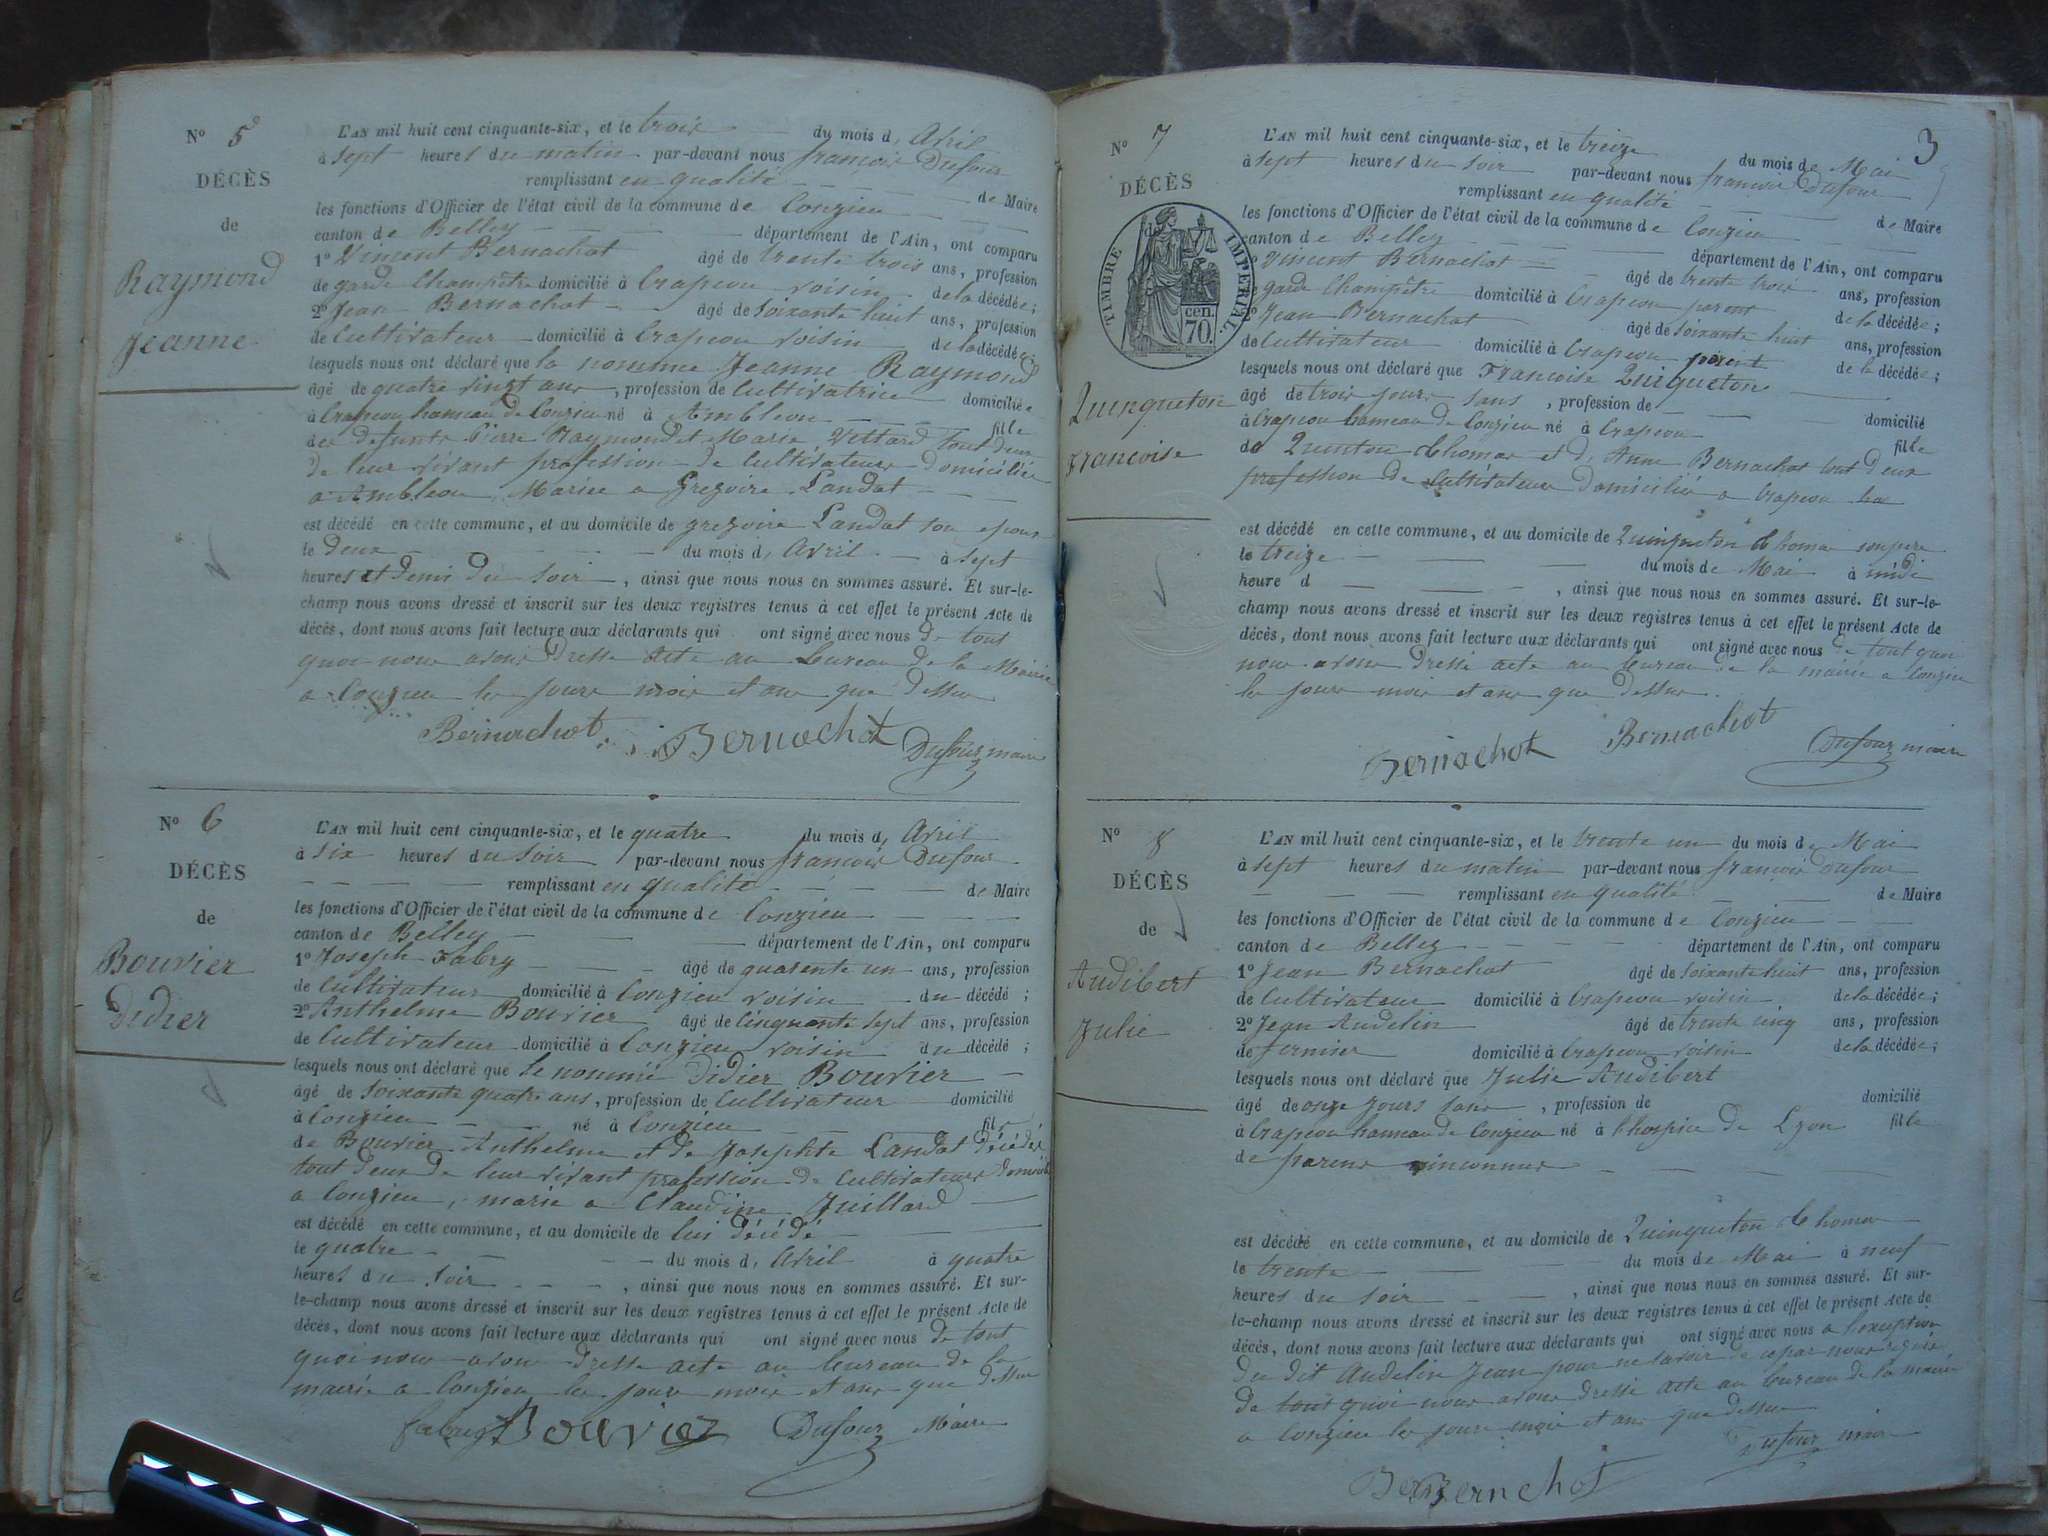 N° 5
DÉCÈS
de
Raymond
Jeanne
L'AN mil huit cent cinquante-six, et le trois du mois d'Avril
à sept heures du matin par-devant nous françois Dufour
remplissant en qualité de Maire
les fonctions d'Officier de l'état civil de la commune de Conzieu
canton de Belley département de l'Ain, ont comparu
1° Vincent Bernachot âgé de trente trois ans, profession
de garde Champêtre domicilié à Crapeou voisin de la décédée;
2° Jean Bernachot âgé de soixante huit ans, profession
de Cultivateur domicilié à Crapeou voisin de la décédée;
lesquels nous ont déclaré que la nommée Jeanne Raymond
âgé de quatre vingt ans, profession de Cultivatrice domiciliée
à Crapeou hameau de Conzieu né à Ambleon fille
des defunts Pierre Raymond et Marie Vettard tout deux
de leur vivant profession de Cultivateurs domiciliés
a Ambleon, Mariee a Gregoire Landat
est décédé en cette commune, et au domicile de gregoire Landat son epoux
le deux du mois d'Avril à sept
heures et demi du soir, ainsi que nous nous en sommes assuré. Et sur-le-
champ nous avons dressé et inscrit sur les deux registres tenus à cet effet le présent Acte de
décès, dont nous avons fait lecture aux déclarants qui ont signé avec nous de tout
quoi nous avons dresse acte au bureau de la Mairie
a Conzieu les jours mois et ans que dessus
Bernachot Bernachot Dufour maire
N° 6
DÉCÈS
de
Bouvier
Didier
L'AN mil huit cent cinquante-six, et le quatre du mois d'Avril
à six heures du soir par-devant nous françois Dufour
remplissant en qualité de Maire
les fonctions d'Officier de l'état civil de la commune de Conzieu
canton de Belley département de l'Ain, ont comparu
1° Joseph Fabry âgé de quarente un ans, profession
de Cultivateur domicilié à Conzieu voisin du décédé;
2° Anthelme Bouvier âgé de cinquante sept ans, profession
de Cultivateur domicilié à Conzieu voisin du décédé;
lesquels nous ont déclaré que le nommé Didier Bouvier
âgé de soixante quatre ans, profession de Cultivateur domicilié
à Conzieu né à Conzieu fils
de Bouvier Anthelme et de Josephte Landat décédés
tout deux de leur vivant profession de Cultivateurs
a Conzieu, marie a Claudine Juillard
est décédé en cette commune, et au domicile de lui décédé
le quatre du mois d'Avril à quatre
heures du soir, ainsi que nous nous en sommes assuré. Et sur-
le-champ nous avons dressé et inscrit sur les deux registres tenus à cet effet le présent Acte de
décès, dont nous avons fait lecture aux déclarants qui ont signé avec nous de tout
quoi nous avons dresse acte au bureau de la
mairie a Conzieu les jours mois et ans que dessus
fabry Bouvier Dufour Maire
3
N° 7
DÉCÈS
TIMBRE IMPÉRIAL.
70 cen.
Quinqueton
francoise
L'AN mil huit cent cinquante-six, et le treize du mois de Mai
à sept heures du soir par-devant nous francois Dufour
remplissant en qualité de Maire
les fonctions d'Officier de l'état civil de la commune de Conzieu
canton de Belley département de l'Ain, ont comparu
Vincent Bernachot âgé de trente trois ans, profession
garde Champêtre domicilié à Crapeou parent de la décédée;
Jean Bernachot âgé de soixante huit ans, profession
de Cultivateur domicilié à Crapeou parent de la décédée;
lesquels nous ont déclaré que Francoise Quinqueton
âgé de trois jours sans, profession de domicilié
à Crapeou hameau de Conzieu né à Crapeou fille
de Quinton Thomas et d'Anne Bernachot tout deux
profession de Cultivateurs domicilié a Crapeou
est décédé en cette commune, et au domicile de Quinqueton Thomas son pere
le treize du mois de Mai à midi
heure d, ainsi que nous nous en sommes assuré. Et sur-le-
champ nous avons dressé et inscrit sur les deux registres tenus à cet effet le présent Acte de
décès, dont nous avons fait lecture aux déclarants qui ont signé avec nous de tout quoi
nous avons dressé acte au bureau de la mairie a Conzieu
les jours mois et ans que dessus.
Bernachot Bernachot Dufour maire
N° 8
DÉCÈS
de
Audibert
Julie
L'AN mil huit cent cinquante-six, et le trente un du mois de Mai
à sept heures du matin par-devant nous françois Dufour
remplissant en qualité de Maire
les fonctions d'Officier de l'état civil de la commune de Conzieu
canton de Belley département de l'Ain, ont comparu
1° Jean Bernachot âgé de soixante huit ans, profession
de Cultivateur domicilié à Crapeou voisin de la décédée;
2° Jean Audelin âgé de trente cinq ans, profession
de fermier domicilié à Crapeou voisin de la décédée;
lesquels nous ont déclaré que Julie Audibert
âgé de onze jours sans, profession de domicilié
à Crapeou hameau de Conzieu né à l'hospice de Lyon fille
de parens inconnus
est décédé en cette commune, et au domicile de Quinqueton Thomas
le trente du mois de Mai à neuf
heures du soir, ainsi que nous nous en sommes assuré. Et sur-
le-champ nous avons dressé et inscrit sur les deux registres tenus à cet effet le présent Acte de
décès, dont nous avons fait lecture aux déclarants qui ont signé avec nous a l'exception
du dit Audelin Jean pour ne savoir de ce par nous requis
de tout quoi nous avons dressé acte au bureau de la mairie
a Conzieu les jours mois et ans que dessus
Dufour maire
Bernachot